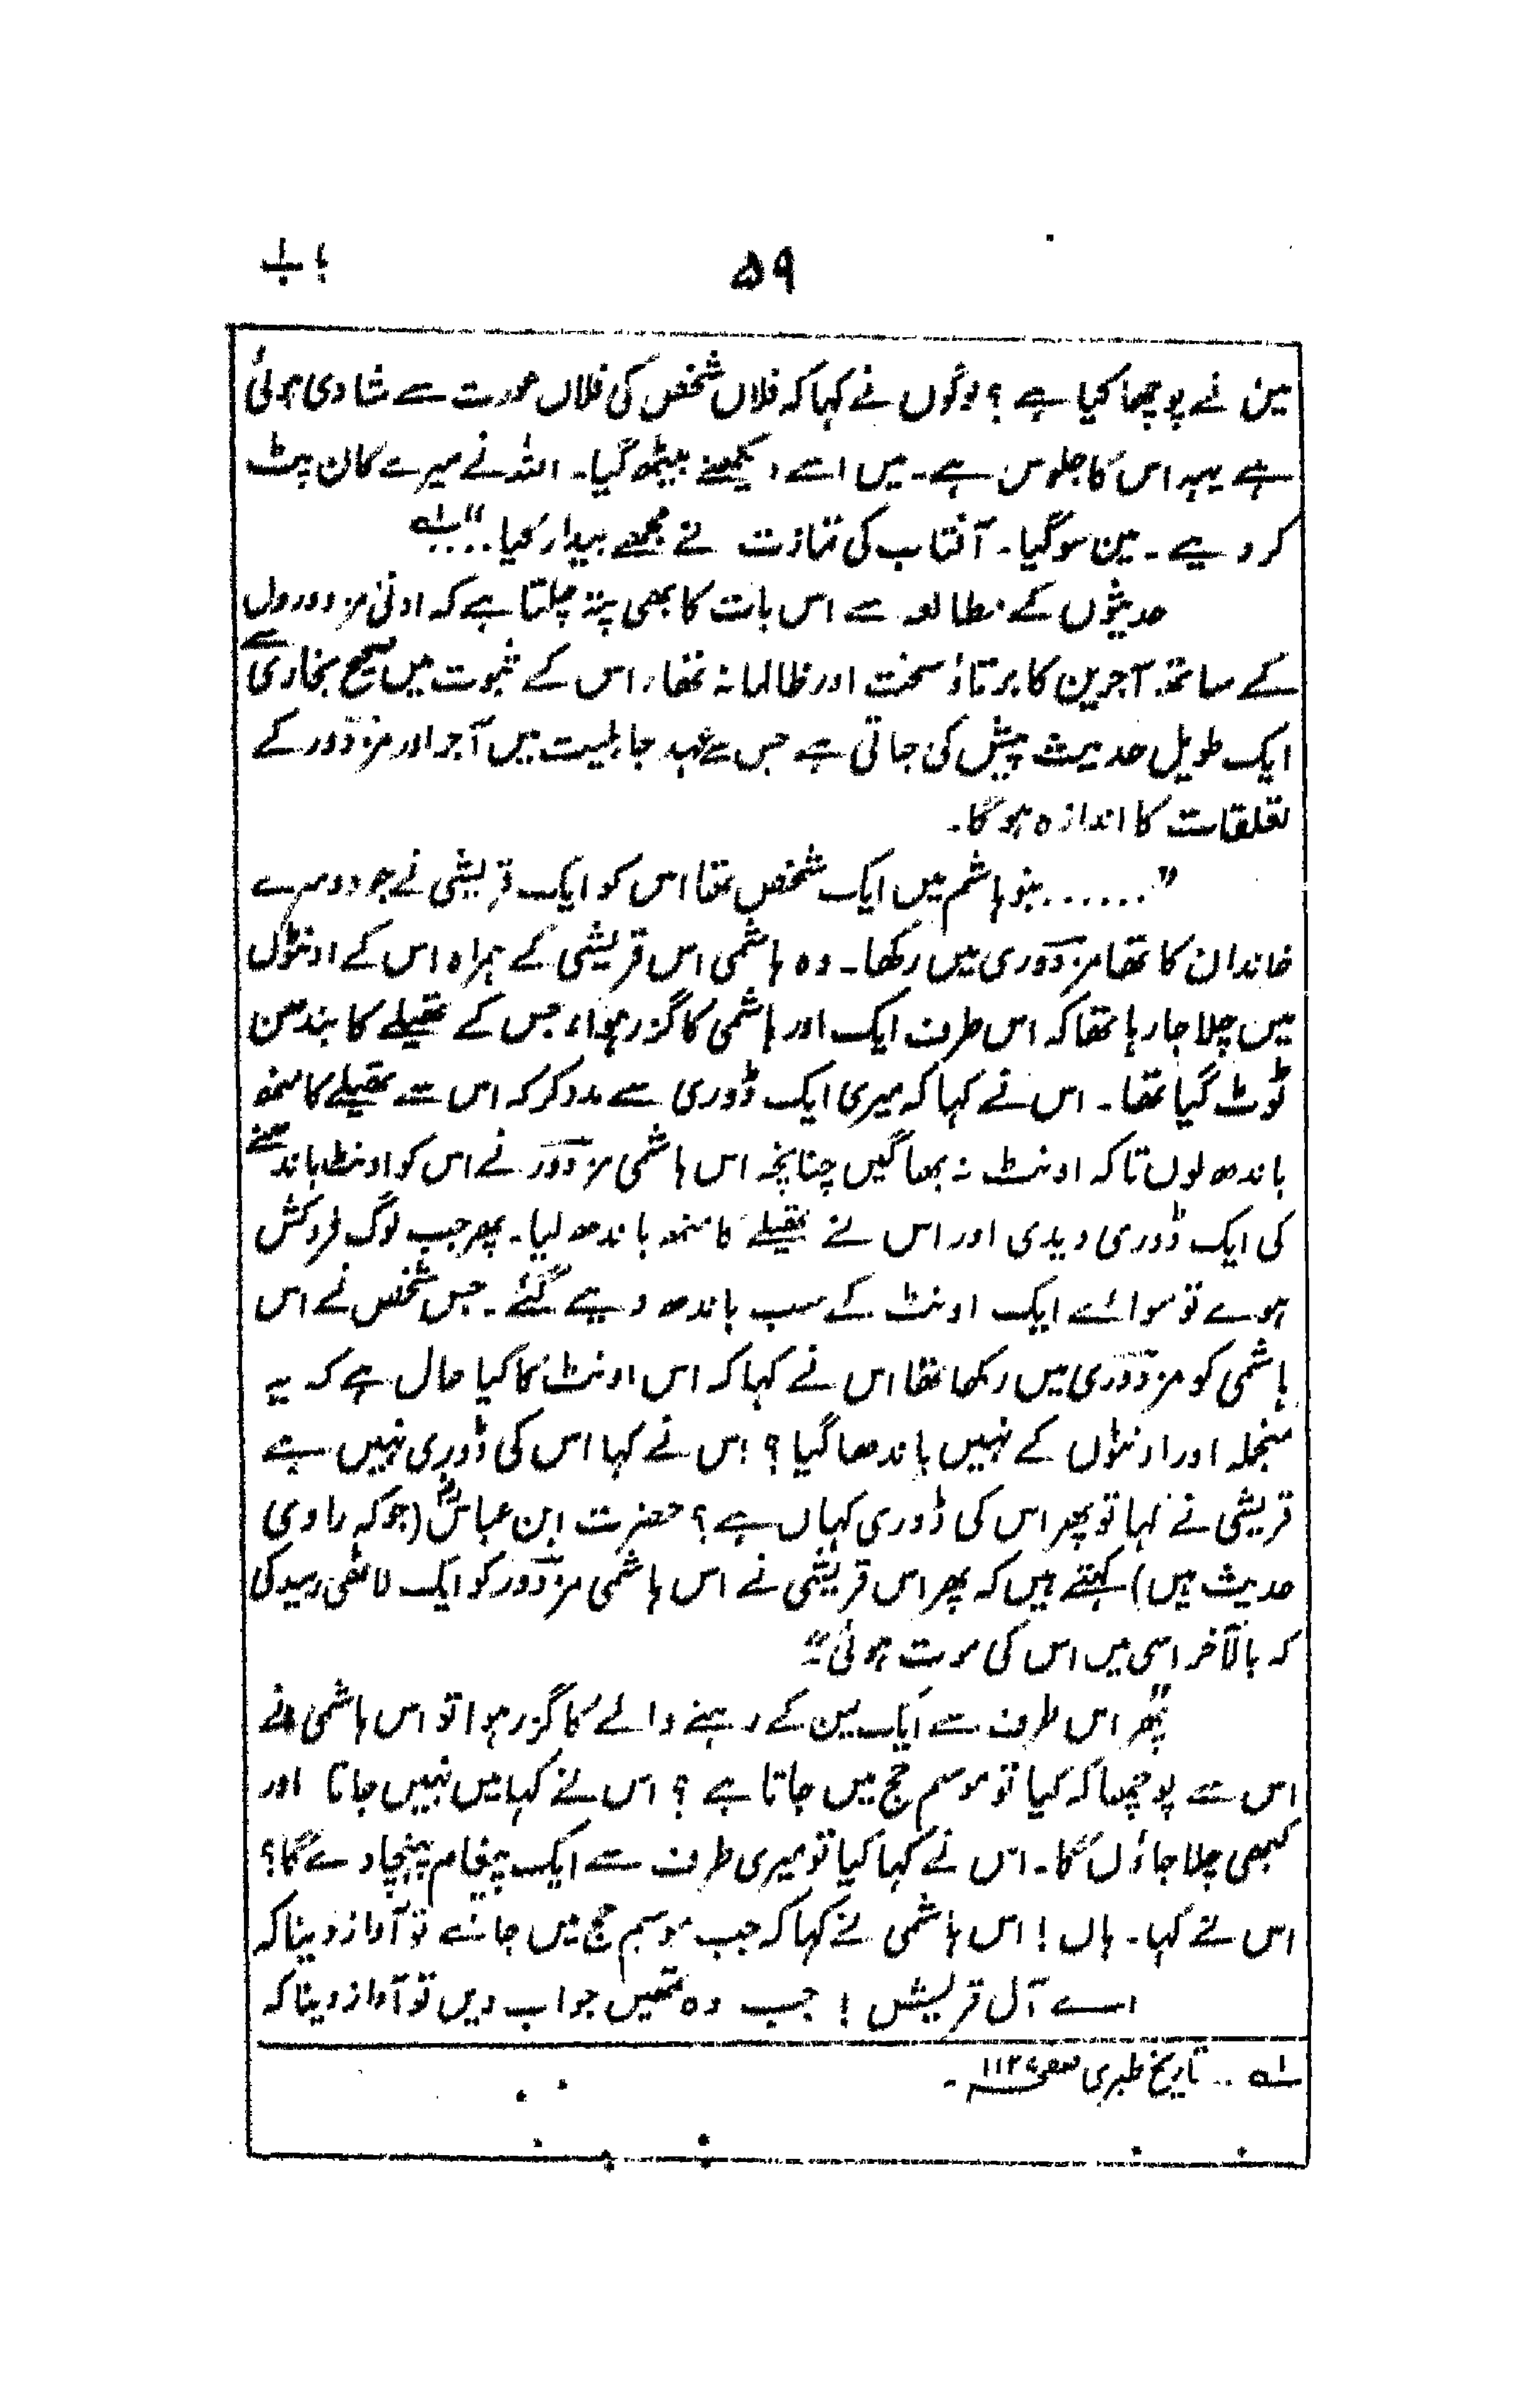 باب ۵۹
مین نے پوچھا کیا ہے ؟ لوگوں نے کہا کہ فلاں شخص کی فلاں عورت سے شادی ہوئی
ہے یہہ اس کا جلوس ہے۔ میں اسے دیکھنے بیٹھ گیا۔ اللہ نے میرے کان پٹ
کر دیے۔ مین سو گیا۔ آفتاب کی تمازت نے مجھے بیدار کیا..." ؎۱
حدیثوں کے مطالعہ سے اس بات کا بھی پتہ چلتا ہے کہ ادنیٰ مزدوروں
کے ساتھ آجرین کا برتاؤ سخت اور ظالمانہ تھا، اس کے ثبوت میں صحیح بخاری سے
ایک طویل حدیث پیش کی جاتی ہے جس سے عہد جاہلیت میں آجر اور مزدور کے
تعلقات کا اندازہ ہو گا۔
"......بنو ہاشم میں ایک شخص تھا اس کو ایک قریشی نے جو دوسرے
خاندان کا تھا مزدوری میں رکھا۔ وہ ہاشمی اس قریشی کے ہمراہ اس کے اونٹوں
میں چلا جا رہا تھا کہ اس طرف ایک اور ہاشمی کا گزر ہوا، جس کے تھیلے کا بندھن
ٹوٹ گیا تھا۔ اس نے کہا کہ میری ایک ڈوری سے مدد کر کہ اس سے تھیلے کا منھ
باندھ لوں تا کہ اونٹ نہ بھاگیں چنانچہ اس ہاشمی مزدور نے اس کو اونٹ باندھنے
کی ایک ڈوری دیدی اور اس نے تھیلے کا منھ باندھ لیا۔ پھر جب لوگ فروکش
ہوے تو سوائے ایک اونٹ کے سب باندھ دیے گئے۔ جس شخص نے اس
ہاشمی کو مزدوری میں رکھا تھا اس نے کہا کہ اس اونٹ کا کیا حال ہے کہ یہ
منجملہ اور اونٹوں کے نہیں باندھا گیا ؟ اس نے کہا اس کی ڈوری نہیں ہے
قریشی نے کہا تو پھر اس کی ڈوری کہاں ہے ؟ حضرت ابن عباسؓ (جو کہ راوی
حدیث ہیں) کہتے ہیں کہ پھر اس قریشی نے اس ہاشمی مزدور کو ایک لاٹھی رسید کی
کہ بالآخر اسی میں اس کی موت ہوئی"۔
"پھر اس طرف سے ایک یمن کے رہنے والے کا گزر ہوا تو اس ہاشمی نے
اس سے پوچھا کہ کیا تو موسم حج میں جاتا ہے ؟ اس نے کہا میں نہیں جاتا اور
کبھی چلا جاؤں گا۔ اس نے کہا کیا تو میری طرف سے ایک پیغام پہنچا دے گا؟
اس نے کہا۔ ہاں ! اس ہاشمی نے کہا کہ جب موسم حج میں جائے تو آواز دینا کہ
اے آل قریش ! جب وہ تمھیں جواب دیں تو آواز دینا کہ
؎۱ .. تاریخ طبری صفحہ